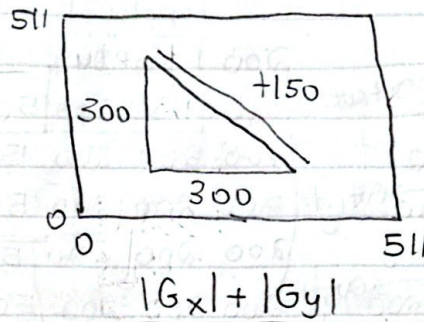 511
+150
300
300
0
0
511
|Gx| + |Gy|